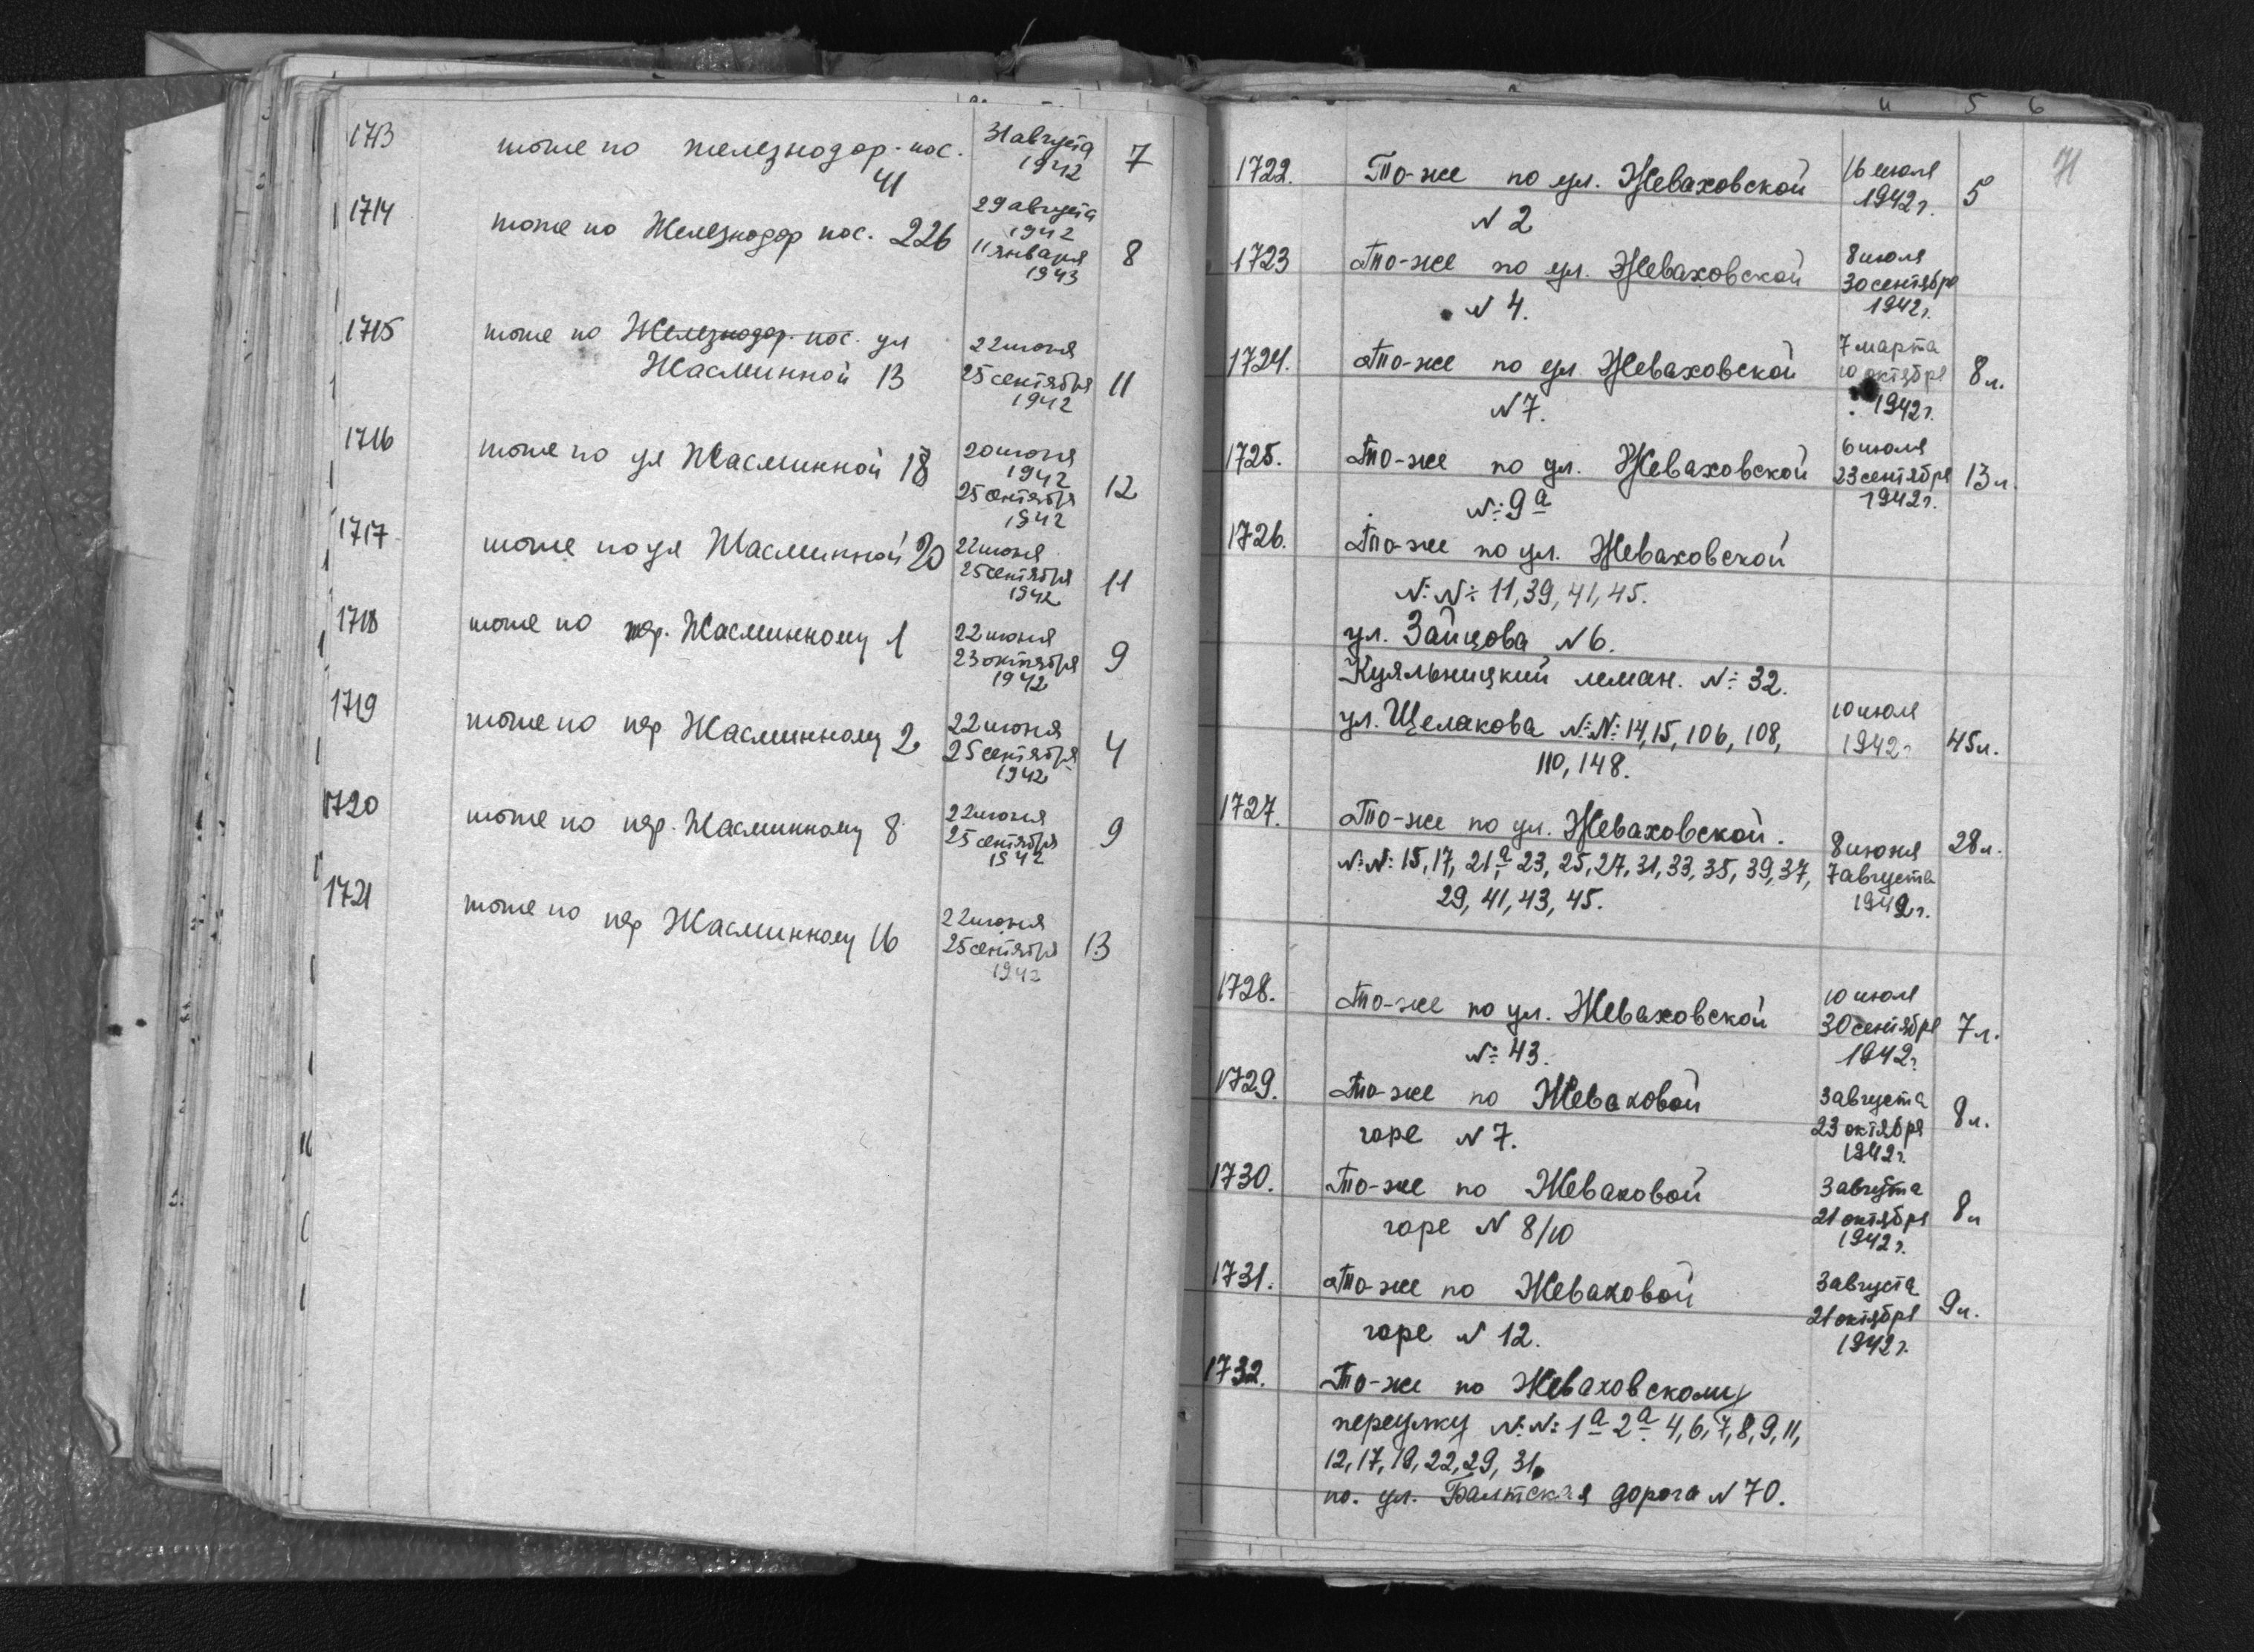 1713 тоже по железнодор. пос. 31 августа 7
41 1942
1714 тоже по Железнодор пос. 22б 29 августа 8
1942
11 января
1943
1715 тоже по Железнодор. пос. ул 22 июня 11
Жасминной 13 25 сентября
1942
1716 тоже по ул Жасминной 18 20 июня 12
1942
25 сентября
1942
1717 тоже по ул Жасминной 20 22 июня 11
25 сентября
1942
1718 тоже по пер. Жасминному 1 22 июня 9
23 октября
1942
1719 тоже по пер Жасминному 2 22 июня 4
25 сентября
1942
1720 тоже по пер. Жасминному 8 22 июня 9
25 сентября
1942
1721 тоже по пер Жасминному 16 22 июня 13
25 сентября
1942
5 6
71
1722. То-же по ул. Жеваховской 16 июля 5
N 2 1942 г.
1723 То-же по ул. Жеваховской 8 июля
N 4. 30 сентября
1942 г.
1724. То-же по ул. Жеваховской 7 марта 8 л.
N 7. 10 октября
1942 г.
1725. То-же по ул. Жеваховской 6 июля 13 л.
N: 9а 23 сентября
1942 г.
1726. То-же по ул. Жеваховской
N: N: 11, 39, 41, 45.
ул. Зайцова N 6.
Куяльницкий лиман. N: 32.
ул. Щелакова N: N: 14, 15, 106, 108, 10 июля 45 л.
110, 148. 1942 г
1727. То-же по ул. Жеваховской. 28 л.
N: N: 15, 17, 21а, 23, 25, 27, 31, 33, 35, 39, 37, 8 июня
29, 41, 43, 45. 7 августа
1942 г.
1728. То-же по ул. Жеваховской 10 июля 7 л.
N: 43. 30 сентября
1942 г.
1729. То-же по Жеваховой 3 августа 8 л.
горе N 7. 23 октября
1942 г.
1730. То-же по Жеваховой 3 августа 8 л
горе N 8/10 21 октября
1942 г.
1731. То-же по Жеваховой 3 августа 9 л.
горе N 12. 21 октября
1942 г.
1732. То-же по Жеваховскому
переулку N: N: 1а 2а. 4, 6, 7, 8, 9, 11,
12, 17, 19, 22, 29, 31.
по. ул. Балтская дорога N 70.